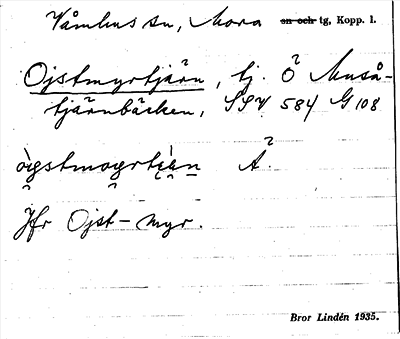 Våmhus sn, Mora sn och tg, Kopp. l.
Ojstmyrtjärn, tj. Ö Muså-
tjärnbäcken, SSV 584 G 108
Jfr Ojst-myr.
Bror Lindén 1935.